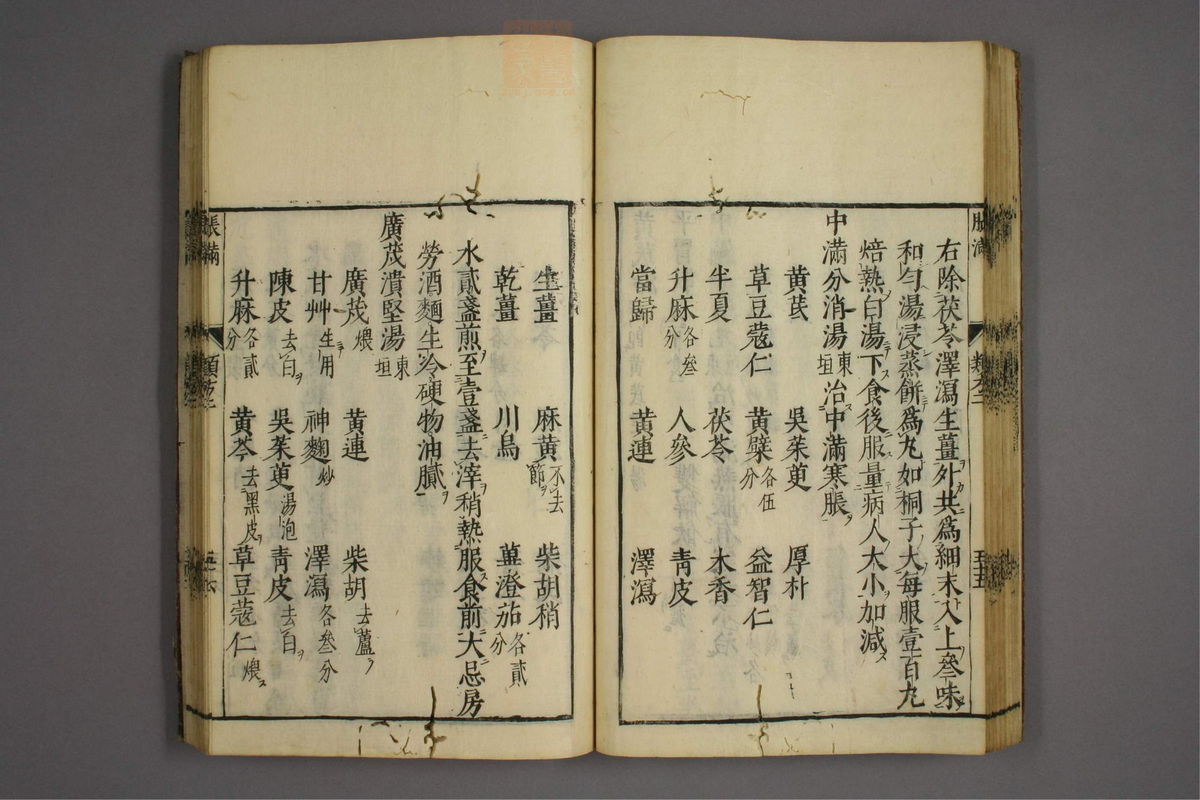 右除茯苓澤瀉生薑外共爲細末入上叄味
和勻湯浸蒸餅爲丸如桐子大每服壹百丸
焙熱白湯下食後服量病人大小加減
中滿分消湯東垣治中滿寒脹
黃芪 吳茱萸 厚朴
草豆蔻仁 黃蘗各伍分 益智仁
半夏 茯苓 木香
升麻各叄分 人參 青皮
當歸 黃連 澤瀉
生薑 麻黃不去節 柴胡稍
乾薑 川烏 蓽澄茄各貳分
水貳盞煎至壹盞去滓稍熱服食前大忌房
勞酒麵生冷硬物油膩
廣茂潰堅湯東垣
廣茂煨 黃連 柴胡去蘆
甘艸生用 神麴炒 澤瀉各叄分
陳皮去白 吳茱萸湯泡 青皮去白
升麻各貳分 黃芩去黑皮 草豆蔻仁煨
脹滿
類方
五十六
五十五